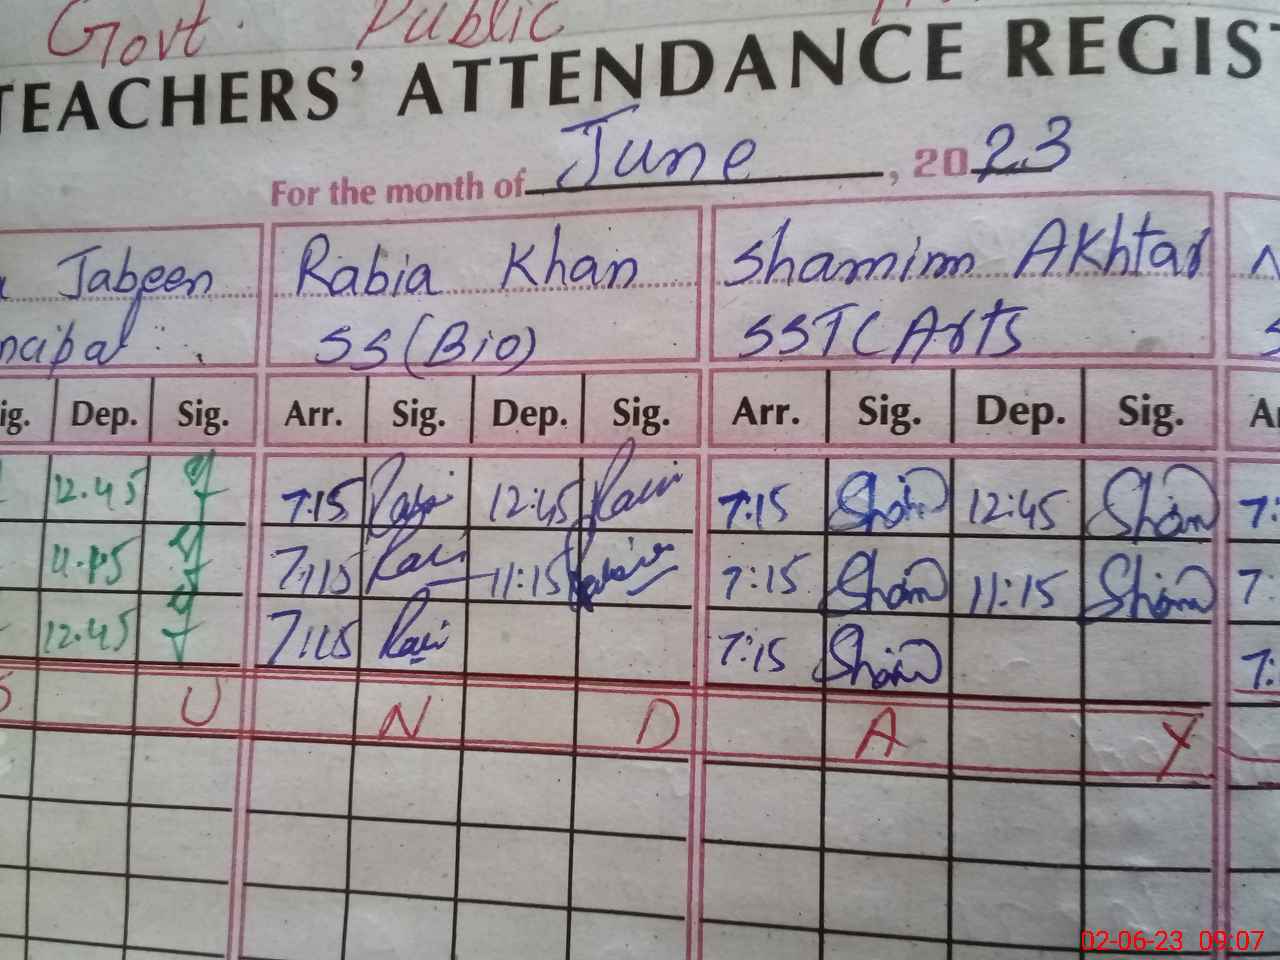 Govt. Public
TEACHERS' ATTENDANCE REGIST
For the month of June, 2023
Jabeen Rabia Khan Shamim Akhtar
ncipal SS (Bio) SST (Arts
ig. Dep. Sig. Arr. Sig. Dep. Sig. Arr. Sig. Dep. Sig.
12.45 7:15 12:45 7:15 Sham 12:45 Sham 7:
11.15 7:15 11:15 7:15 Sham 11:15 Sham 7:
12.45 7:15 7:15 Sham 7:
S U N D A Y
02-06-23 09:07